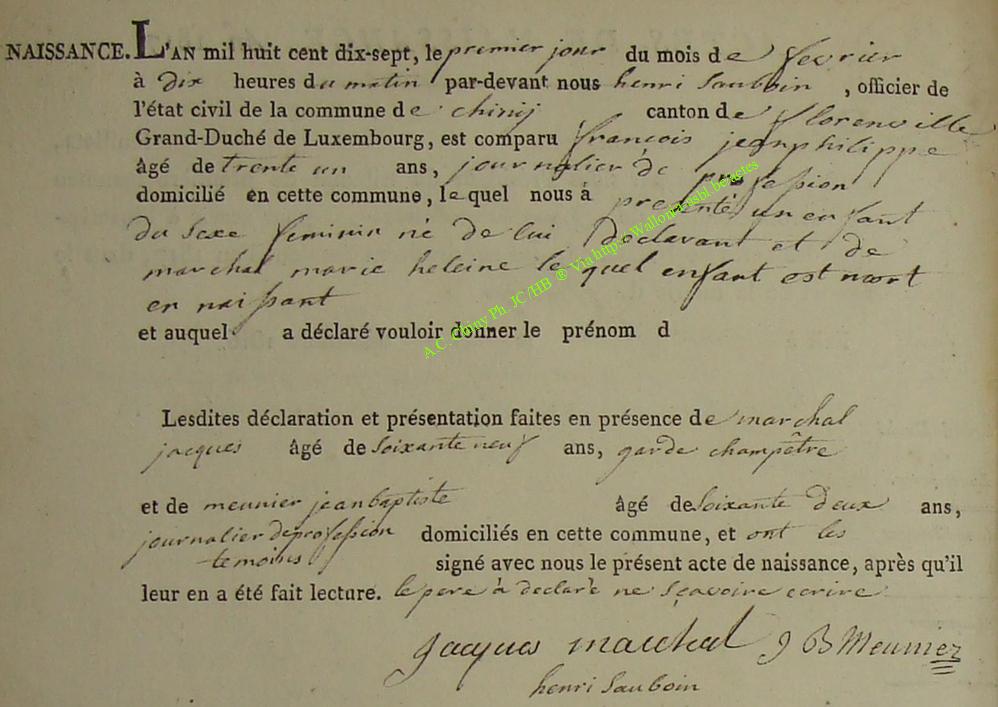 NAISSANCE. L'AN mil huit cent dix-sept, le premier jour du mois de fevrier
à dix heures du matin par-devant nous henri Sauboin , officier de
l'état civil de la commune de chinij canton de florenville
Grand-Duché de Luxembourg, est comparu françois jean philippe
âgé de trente un ans, journalier de profession
domicilié en cette commune, le quel nous à presenté un enfant
du sexe feminin né de lui Déclarant et de
marchal marie heleine le quel enfant est mort
en naissant
et auquel a déclaré vouloir donner le prénom d
A.C. Chiny Ph. JC/HB ® Via http://Wallonia.asbl.be/astes
Lesdites déclaration et présentation faites en présence de marchal
jacques âgé de soixante neuf ans, garde champêtre
et de meunier jean baptiste âgé de soixante deux ans,
journalier de profession domiciliés en cette commune, et ont les
temoins signé avec nous le présent acte de naissance, après qu'il
leur en a été fait lecture. le pere à declaré ne sçavoire ecrire
jacques marchal J B Meunier
henri Sauboin